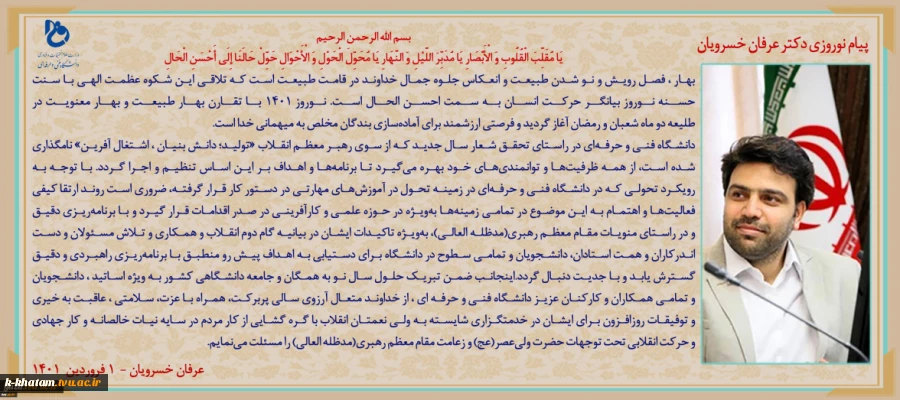 پیام نوروزی دکتر عرفان خسرویان
بسم الله الرحمن الرحیم
یَا مُقَلِّبَ الْقُلُوبِ وَ الْأَبْصَارِ یَا مُدَبِّرَ اللَّیْلِ وَ النَّهَارِ یَا مُحَوِّلَ الْحَوْلِ وَ الْأَحْوَالِ حَوِّلْ حَالَنَا إِلَی أَحْسَنِ الْحَالِ
بهار ، فصل رویش و نو شدن طبیعت و انعکاس جلوه جمال خداوند در قامت طبیعت است که تلاقی این شکوه عظمت الهی با سنت
حسنه نوروز بیانگر حرکت انسان به سمت احسن الحال است. نوروز ۱۴۰۱ با تقارن بهار طبیعت و بهار معنویت در
طلیعه دو ماه شعبان و رمضان آغاز گردید و فرصتی ارزشمند برای آماده‌سازی بندگان مخلص به میهمانی خدا است.
دانشگاه فنی و حرفه‌ای در راستای تحقق شعار سال جدید که از سوی رهبر معظم انقلاب «تولید؛ دانش بنیان ، اشتغال آفرین» نامگذاری
شده است، از همه ظرفیت‌ها و توانمندی‌های خود بهره می‌گیرد تا برنامه‌ها و اهداف بر این اساس تنظیم و اجرا گردد. با توجه به
رویکرد تحولی که در دانشگاه فنی و حرفه‌ای در زمینه تحول در آموزش‌های مهارتی در دستور کار قرار گرفته، ضروری است روند ارتقا کیفی
فعالیت‌ها و اهتمام به این موضوع در تمامی زمینه‌ها به‌ویژه در حوزه علمی و کارآفرینی در صدر اقدامات قرار گیرد و با برنامه‌ریزی دقیق
و در راستای منویات مقام معظم رهبری(مدظله العالی)، به‌ویژه تاکیدات ایشان در بیانیه گام دوم انقلاب و همکاری و تلاش مسئولان و دست
اندرکاران و همت استادان، دانشجویان و تمامی سطوح در دانشگاه برای دستیابی به اهداف پیش رو منطبق با برنامه‌ریزی راهبردی و دقیق
گسترش یابد و با جدیت دنبال گردد.اینجانب ضمن تبریک حلول سال نو به همگان و جامعه دانشگاهی کشور به ویژه اساتید ، دانشجویان
و تمامی همکاران و کارکنان عزیز دانشگاه فنی و حرفه ای ، از خداوند متعال آرزوی سالی پربرکت، همراه با عزت، سلامتی ، عاقبت به خیری
و توفیقات روزافزون برای ایشان در خدمتگزاری شایسته به ولی نعمتان انقلاب با گره گشایی از کار مردم در سایه نیات خالصانه و کار جهادی
و حرکت انقلابی تحت توجهات حضرت ولی‌عصر(عج) و زعامت مقام معظم رهبری(مدظله العالی) را مسئلت می‌نمایم.
عرفان خسرویان - ۱ فروردین ۱۴۰۱
k-khatam.tvu.ac.ir